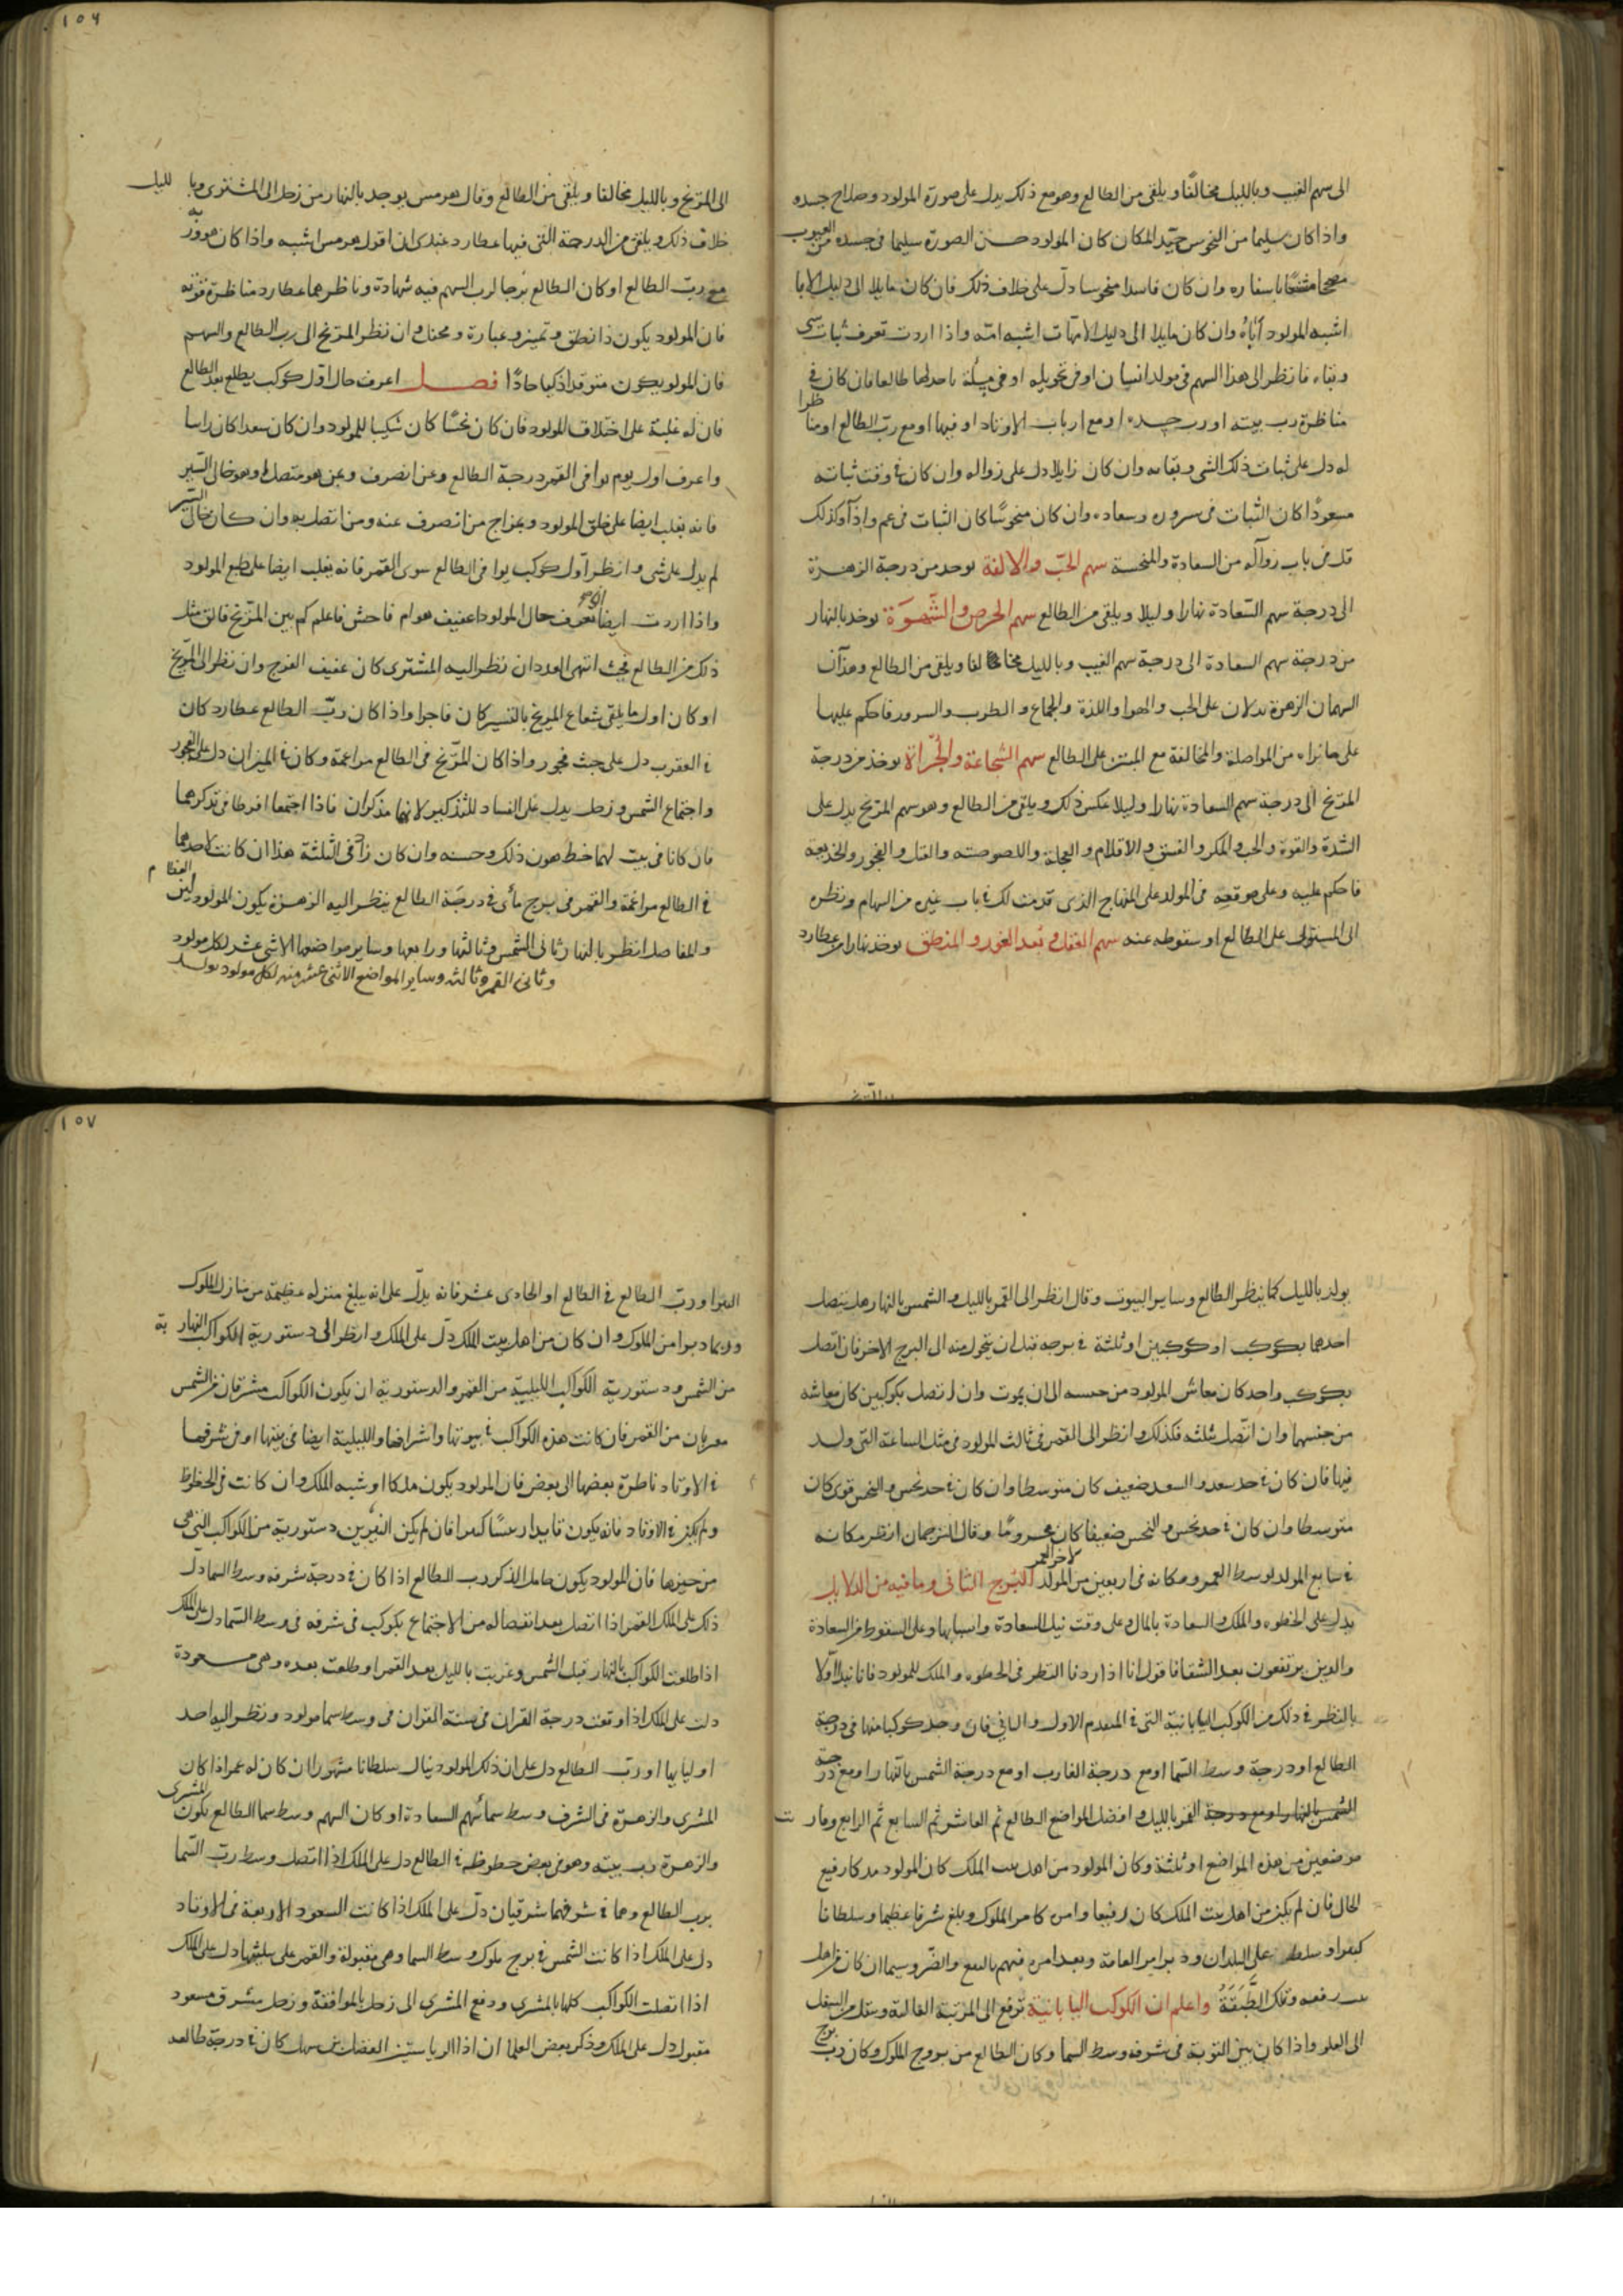 ١٥٦
الى سهم الغيب وبالليل مخالفا ويلقى من الطالع وهو مع ذلك يدل على صورة المولود وصلاح جسده
واذا كان سليما من النحوس جيّد المكان كان المولود حسن الصورة سليما فى جسده من العيوب
وان كان فاسدا منحوسا دلّ على خلاف ذلك فان كان مايلا الى دليل الابا
اشبه المولود آباءُ وان كان مايلا الى دليل الامهات اشبه امّه واذا اردت تعرف ثبات شى
وبقاه فانظر الى هذا السهم فى مولد انسان او فى تحويله او فى مسئلة باحدلها طالعا فان كان فى
مناظرة رب بيته او رب حده او مع ارباب الاوتاد او فيها او مع رب الطالع او مناظرا
له دل على ثبات ذلك الشى وبقايه وان كان زايلا دل على زواله وان كان فى وقت ثباته
مسعودًا كان الثبات فى سروره وسعاده وان كان منحوسًا كان الثبات فى غم واذآ وكذلك
قل فى باب زواله من السعادة والمنحسة سهم الحبّ والالفة يوحد من درجة الزهرة
الى درجة سهم السّعادة نهارا وليلا ويلقى من الطالع سهم الحرص والشّهوَة يوخد بالنهار
من درجة سهم السعادة الى درجة سهم الغيب وبالليل مخا لفا ويلقى من الطالع وهذان
السهمان الزهرة يدلان على الحب والهوا واللذة والجماع والطرب والسرور فاحكم عليها
على ما تراه من المواصلة والمخالفة مع المبتز على الطالع سهم الشجاعة والجُرأة يوخذ من درجة
المرّيخ الى درجة سهم السعادة نهارا وليلا عكس ذلك ويلقى من الطالع وهو سهم المريخ يدل على
الشدة والقوة والحب والمكر والفسق والاقدام والعجلة واللصوصته والقتل والفجور والخديعة
فاحكم عليه وعلى موقعه فى المولد على المنهاج الذى قدمت لك فى باب غيره من السهام ونظره
الى المستولى على الطالع او سقوطه عنه سهم العقل وبُعد الغور والمنطق يوخذ نهارا من عطارد
الى المرّيخ وبالليل مخالفا ويلقى من الطالع وقال هرمس يوجد بالنهار من زحل الى المشترى وبالليل
خلاف ذلك ويلقى من الدرجة التى فيها عطارد عندى ان اقول هرمس اشبه واذا كان هو وربّه
مع ربّ الطالع او كان الطالع بُرجا لرب السهم فيه شهادة وناظرهما عطارد مناظرة قوية
فان المولود يكون ذا نطق وتميز وعبارة ومحناج وان نظر المرّيخ الى رب الطالع والسهم
فان المولود يكون متوقدا ذكيا حادًّا فصل اعرف حال اوّل كوكب يطلع بعد الطالع
فان له غلبة على اختلاف المولود فان كان نحسًا كان شكيسا للمولود وان كان سعدا كان راسا
واعرف اول يوم يوافى القمر درجة الطالع وعن انصرف وعن هو متصل او هو خالى السّير
فانه يغلب ايضا على خلق المولود وبمزاج من انصرف عنه ومن اتصل به وان كان خالى السّير
لم يدل على شى وانظر آوّل كوكب يوافى الطالع سوى القمر فانه يغلب ايضا على طبع المولود
واذا اردت ايضا تعرف حال المولود اعفيف هو ام فاحش فاعلم كم بين المرّيخ فالق مثل
ذلك من الطالع فحيث انتهى العدد ان نظر اليه المشترى كان عفيف الفرج وان نظر الى المرّيخ
او كان اول ما يلقى شعاع المريخ بالتسيير كان فاجرا واذا كان ربّ الطالع عطارد كان
فى العقرب دل على خبث فجور واذا كان المرّيخ فى الطالع مراعمة وكان فى الميزان دل على الفجور
واجتماع الشمس وزحل يدل على الفساد للتذكير لانهما مذكران فاذا اجتمعا افرطا فى تذكيرهما
فان كانا فى بيت لهما حظ هون ذلك وحسنه وان كان زاد فى الثلثة هذا ان كانت لاحدهما
فى الطالع مراعمة والقمر فى برج مائى فى درجة الطالع ينظر اليه الزهرة يكون المولود لين العظام
والمفاصل انظر بالنهار ثانى الشمس وثالثها ورابعها وساير مواضعها الاثنى عشر لكل مولود
وثانى القمر وثالثه وساير المواضع الاثنى عشر منه لكل مولود يولد
١٥٧
يولد بالليل كما ينظر الطالع وساير البيوت وقال انظر الى القمر بالليل والشمس بالنهار هل يتصل
احدهما بكوكب او كوكبين او ثلثة فى برجه قبل ان يتحول منه الى البرج الاخر فان اتصل
بكوكب واحد كان معاش المولود من جنسه الى ان يموت وان اتصل بكوكبين كان معاشه
من جنسهما وان اتّصل بثلثه فكذلك وانظر الى القمر فى ثالث المولود فى مثل الساعة التى ولد
فيها فان كان فى حد سعد والسعد ضعيف كان متوسطا وان كان فى حد نحس والنحس قوى كان
متوسطا وان كان فى حد نحس والنحس ضعيفا كان محرومًا وقال الترجمان انظر مكانه
فى سابع المولد لوسط العمر ومكانه فى اربعين من المولد لاخر العمر البُرج الثانى وما فيه من الدلايل
يدل على الحظوه والملك والسعادة بالمال وعلى وقت نيل السعادة واسبابها وعلى السقوط من السعادة
والدين يرتفعون بعد الشقا فاقول انا اذا اردنا النظر فى الحظوه والملك للمولود فانا نبدا اوّلا
بالنظر فى ذلك من الكوكب اليابانية التى فى المتقدم الاول والثانى فان وجد كوكبا منها فى درجة
الطالع او درجة وسط السّما او مع درجة الغارب او مع درجة الشمس بالنّهار او مع درجة
القمر بالليل وافضل المواضع الطالع ثم العاشر ثم السابع ثم الرابع وقارنت
موضعين من هذه المواضع او ثلثة وكان المولود من اهل بيت الملك كان المولود ملكا رفيع
الحال فان لم يكن من اهل بيت الملك كان رفيعا وامره كامر الملوك وبلغ شرفا عظيما وسلطانا
على البلدان ودبر امر العامة وبعد امره فيهم بالنفع والضّر وسيما ان كان من اهل
بيت رفعه وتلك الطّبَقَةُ واعلم ان الكوكب اليابانية ترفع الى المرتبة العالية وتنقل من السفل
الى العلو واذا كان بين النوبة فى شرفه وسط السما وكان الطالع من بروج الملوك وكان رب برج
النوا ورب الطالع فى الطالع او الحادى عشر فانه يدلّ على انه يبلغ منزله عظيمة من منازل الملوك
وربما دبوا من الملوك وان كان من اهل بيت الملك دلّ على الملك وانظر الى دستورية الكواكب النهارية
من الشمس ودستورية الكواكب الليلية من القمر والدستورية ان يكون الكواكب مشرقات من الشمس
مغربات من القمر فان كانت هذه الكواكب فى بيوتها واشرافها والليلية ايضا فى بيتها او فى شرفها
فى الاوتاد ناظرة بعضها الى بعض فان المولود يكون ملكا او شبه الملك وان كانت فى الحظوظ
ولم يكن فى الاوتاد فانه يكون قايدا رييسًا كبيرا فان لم يكن النيرين دستورية من الكواكب التى هى
من حيزها فان المولود يكون حامل الذكر رب الطالع اذا كان فى درجة شرفه وسط السما دلّ
ذلك على الملك القمر اذا اتصل بعد انفصاله من الاجتماع بكوكب فى شرفه فى وسط السّما دل على الملك
اذا طلعت الكواكب بالنهار قبل الشمس وغربت بالليل بعد القمر او طلعت بعده وهى مسعودة
دلت على الملك اذا وقعت درجة القران فى سنة القران فى وسط سما مولود ونظر اليه احد
اولياييا او رب الطالع دل على ان ذلك المولود ينال سلطانا مشهورا ان كان له عمر اذا كان
المشرى والزهرة فى الشرف وسط سمائهم السعادة او كان السهم وسط سما الطالع يكون المشرى
والزهرة رب بيته وهو فى بعض حظوظه فى الطالع دل على الملك اذا اتصل وسط رب السّما
برب الطالع وهما فى شرفهما شرقيان دلّ على الملك اذا كانت السعود الاربعة فى الاوتاد
دل على الملك اذا كانت الشمس فى برج ملوك وسط السما وهى مقبولة والقمر على تثليثها دل على الملك
اذا اتصلت الكواكب كلها بالمشرى ودفع المشرى الى زحل بالموافقة وزحل مشرق مسعود
مقبول دل على الملك وذكر بعض العلما ان اذا الرياستين الفضل بن سهل كان فى درجة طالعه